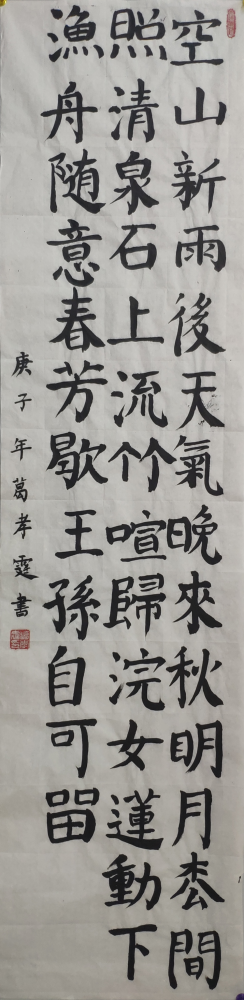 空山新雨後天氣晚來秋明月枩間
照清泉石上流竹喧歸浣女蓮動下
漁舟随意春芳歇王孫自可留
庚子年葛孝霆書